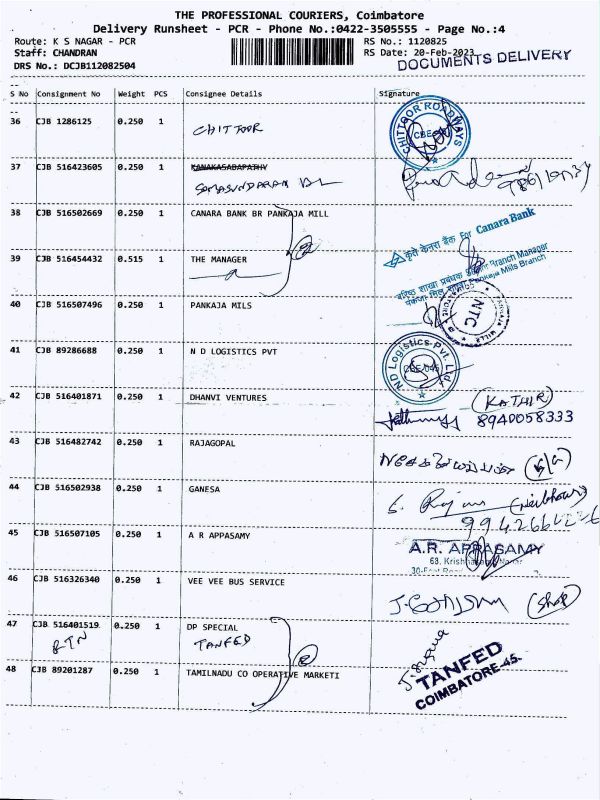 THE PROFESSIONAL COURIERS, Coimbatore
Delivery Runsheet - PCR - Phone No.:0422-3505555 - Page No.:4
Route: K S NAGAR - PCR
RS No.: 1120825
Staff: CHANDRAN
RS Date: 20-Feb-2023
DRS No.: DCJB112082504
DOCUMENTS DELIVERY
S No Consignment No Weight PCS Consignee Details Signature
36 CJB 1286125 0.250 1 CHITTOOR
CHITTOOR ROADWAYS
CBE
37 CJB 516423605 0.250 1 KANAKASABAPATHY
SOMASUNDARAM BL
38 CJB 516502669 0.250 1 CANARA BANK BR PANKAJA MILL
कृते केनरा बैंक For Canara Bank
39 CJB 516454432 0.515 1 THE MANAGER
वरिष्ठ शाखा प्रबंधक Branch Manager
Pankaja Mills Branch
40 CJB 516507496 0.250 1 PANKAJA MILS
NTC
PANKAJA MILLS
41 CJB 89286688 0.250 1 N D LOGISTICS PVT
ND Logistics Pvt. Ltd
42 CJB 516401871 0.250 1 DHANVI VENTURES
(KATHIR)
8940058333
43 CJB 516482742 0.250 1 RAJAGOPAL
44 CJB 516502938 0.250 1 GANESA
45 CJB 516507105 0.250 1 A R APPASAMY
A.R. APPASAMY
63, Krish
46 CJB 516326340 0.250 1 VEE VEE BUS SERVICE
(Shop)
47 CJB 516401519 0.250 1 DP SPECIAL
RTN TANFED
48 CJB 89201287 0.250 1 TAMILNADU CO OPERATIVE MARKETI
TANFED
COIMBATORE-45.